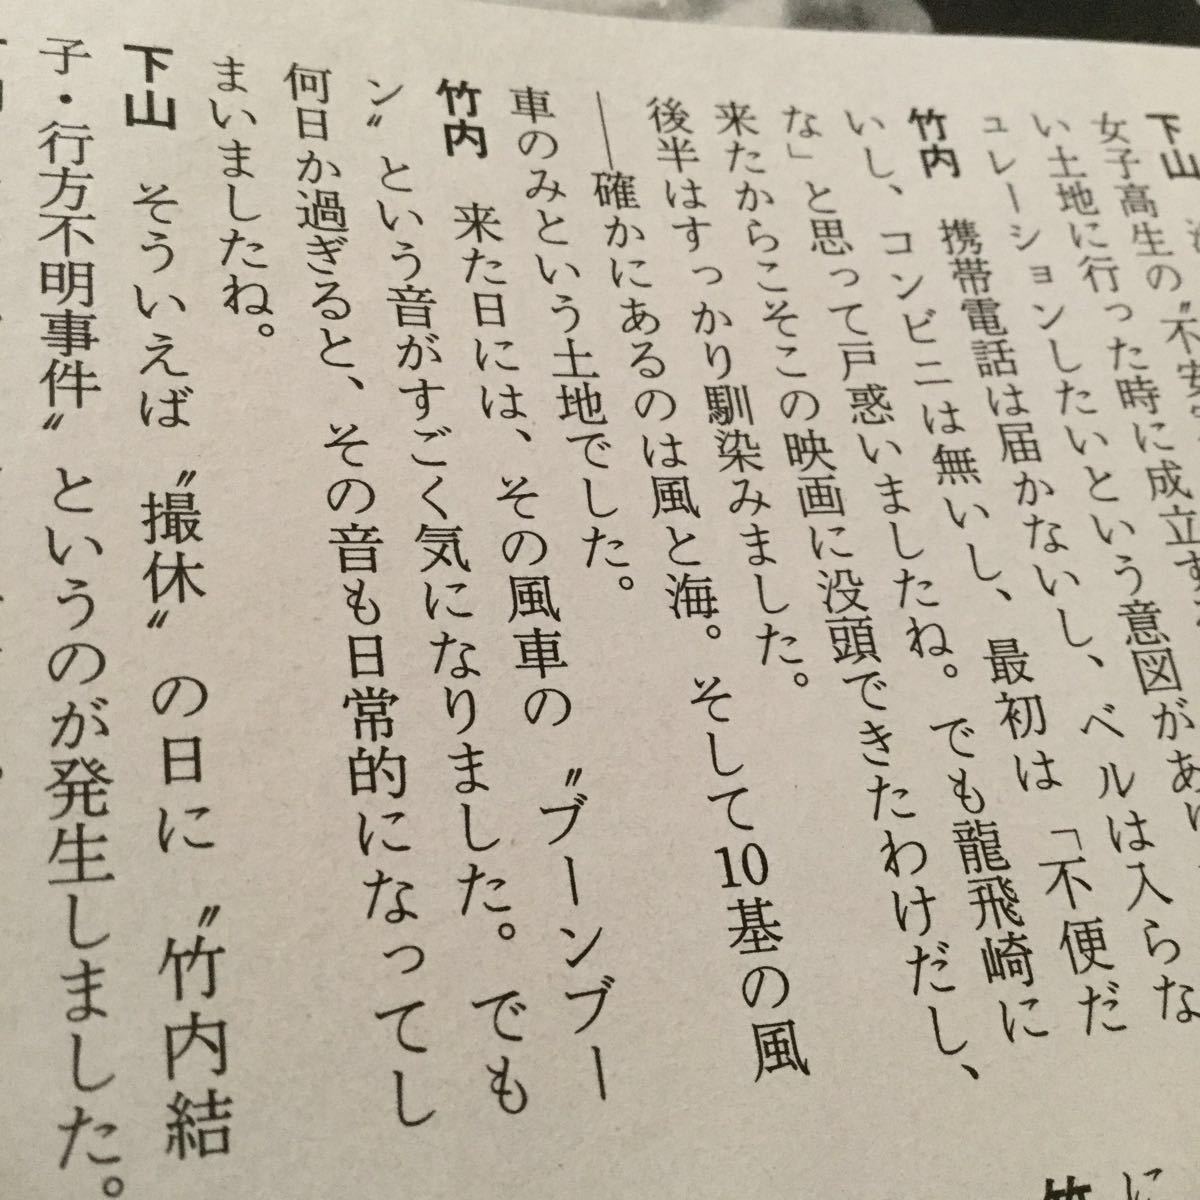 下山
女子高生の〝不安
い土地に行った時に成立す
ュレーションしたいという意図があ
竹内　携帯電話は届かないし、ベルは入らな
いし、コンビニは無いし、最初は「不便だ
な」と思って戸惑いましたね。でも龍飛崎に
来たからこそこの映画に没頭できたわけだし、
後半はすっかり馴染みました。
──確かにあるのは風と海。そして10基の風
車のみという土地でした。
竹内　来た日には、その風車の〝ブーンブー
ン〟という音がすごく気になりました。でも
何日か過ぎると、その音も日常的になってし
まいましたね。
下山　そういえば〝撮休〟の日に〝竹内結
子・行方不明事件〟というのが発生しました。
に
竹